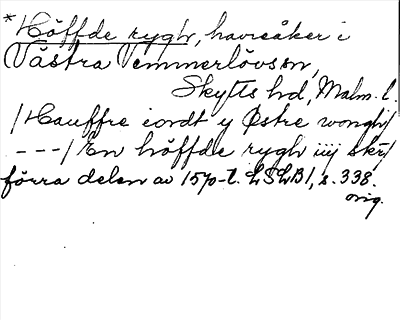 *Höffde rygh, havreåker i
Västra Vemmerlövssn,
Skytts hd, Malm. l.
/Hauffre iordt y Østre wongh/
---/ En höffde rygh iiij skr/
förra delen av 1570-t. LSLB1, s. 338.
orig.